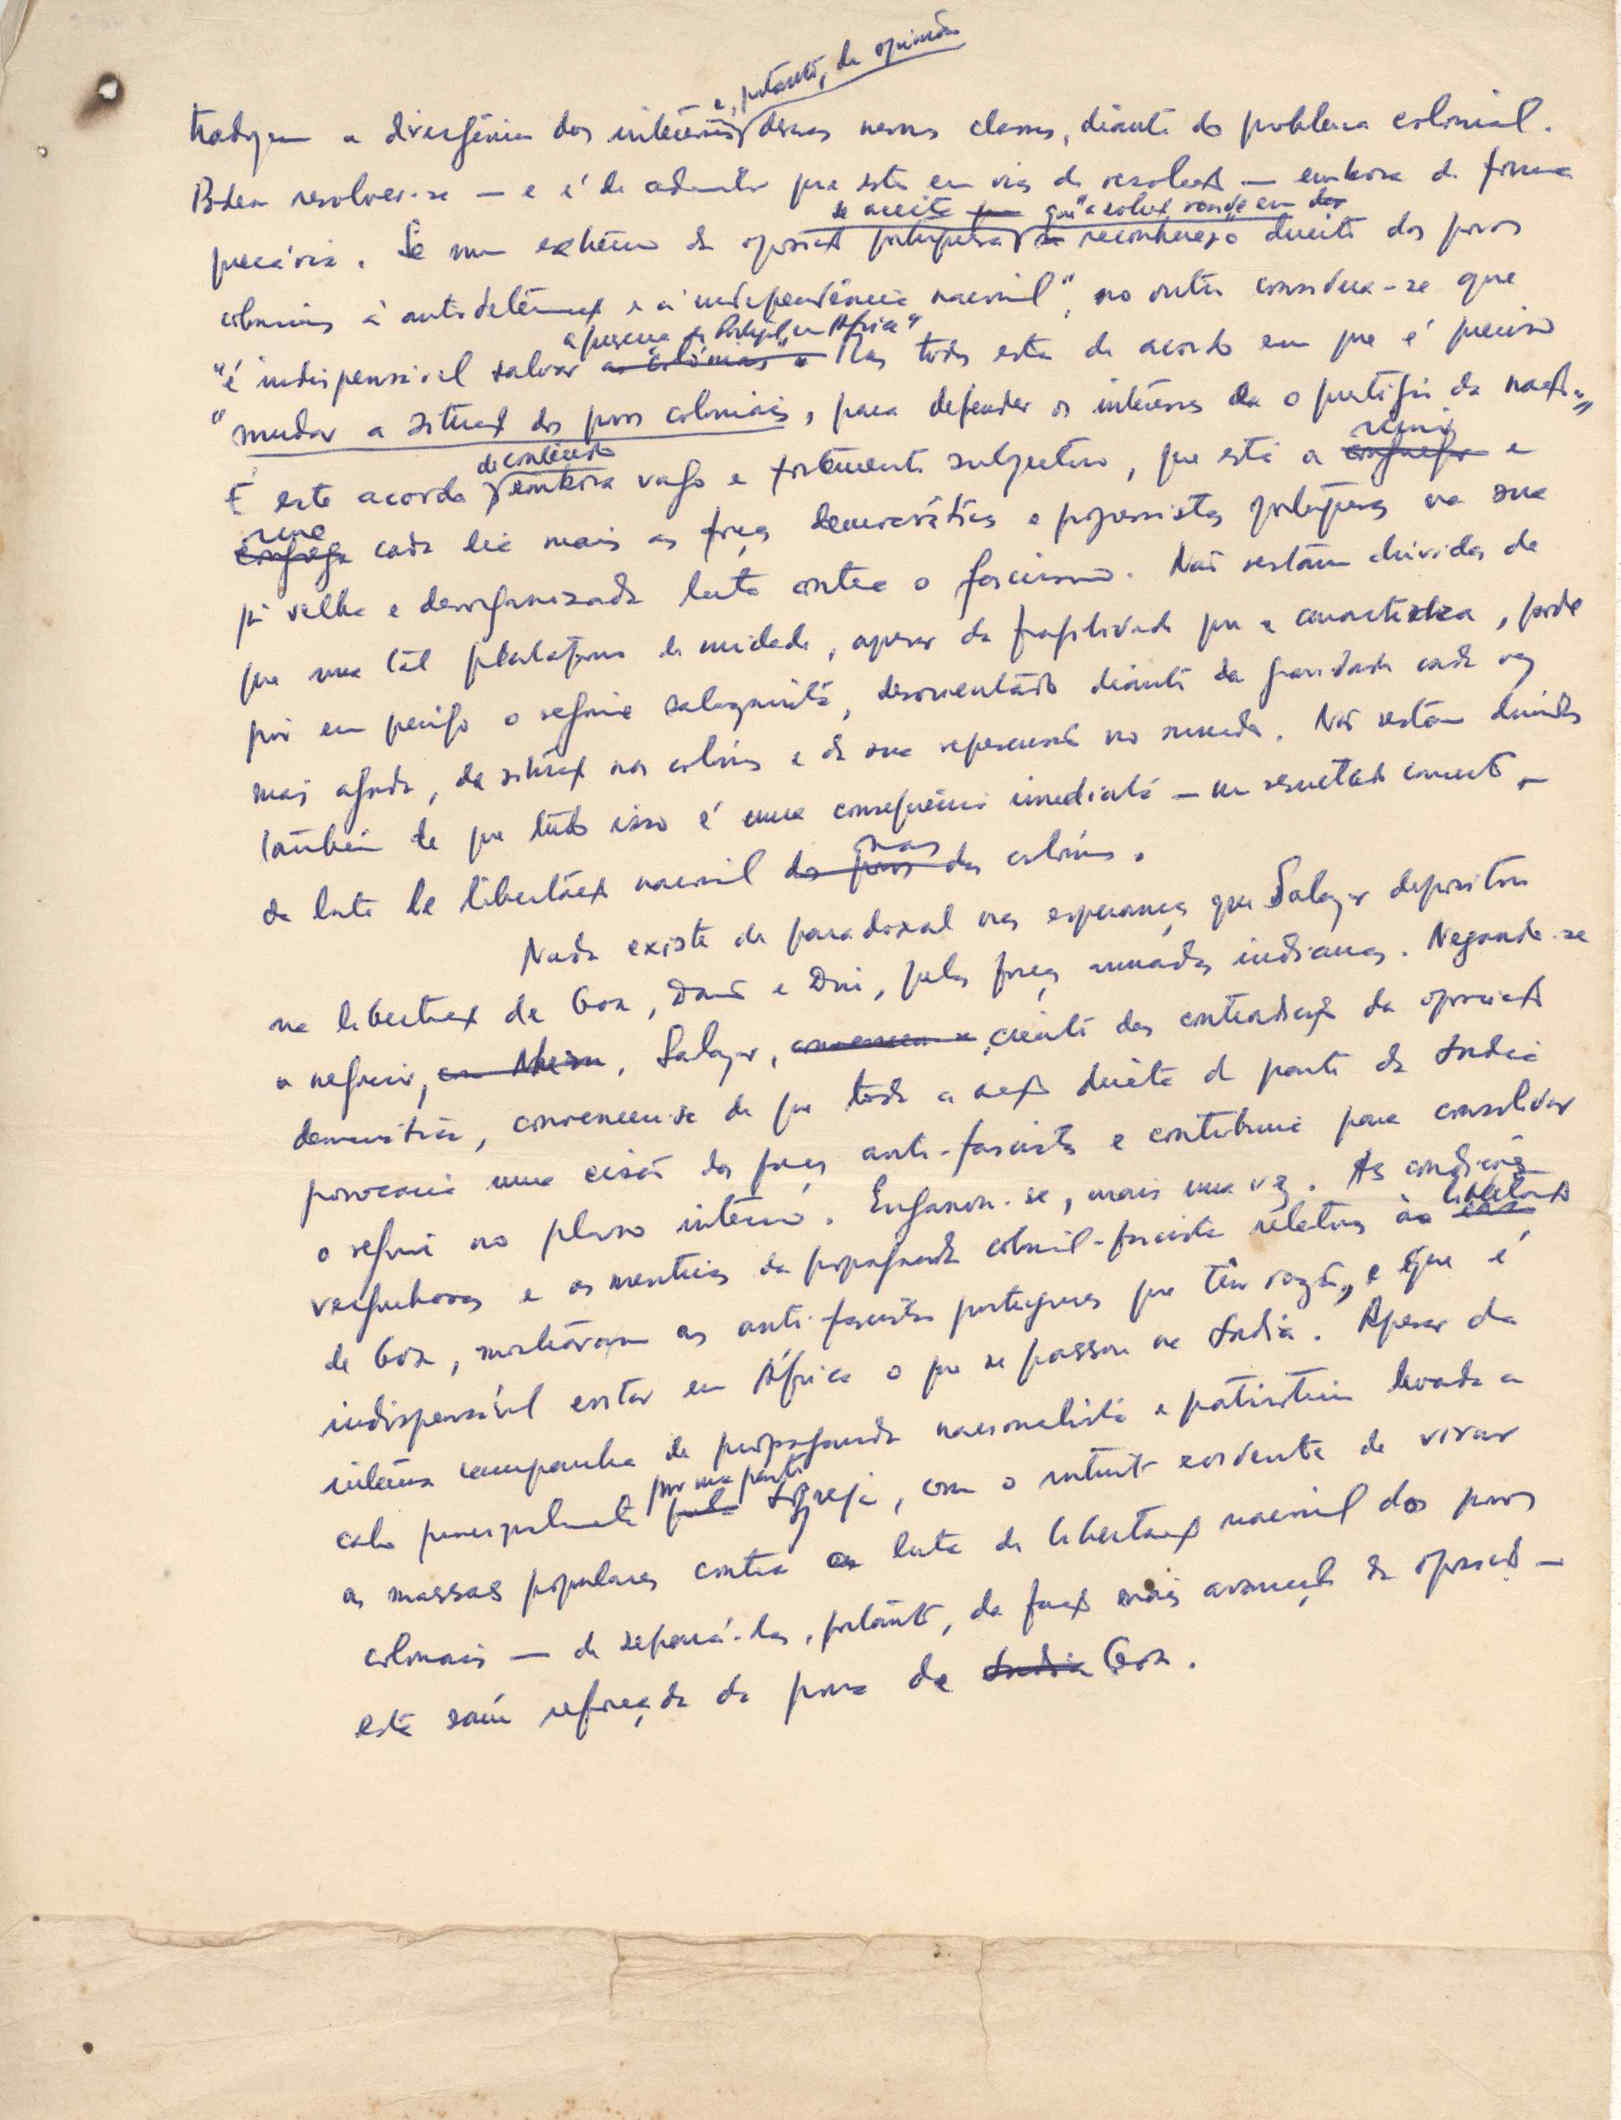 e, portanto, de opinião
traduzem a divergência dos interêsses dessas mesmas classes, diante do problema colonial.
Podem resolver-se — e é de admitir que estão em vias de resolução — embora de forma
se aceita que que "a solução reside em dar
precária. Se num extrêmo da oposição portuguesa se reconhece o direito dos povos
coloniais à autodeterminação e à independência nacional", no outro considera-se que
a presença de Portugal em África"
"é indispensável salvar as colónias". Mas todos estão de acordo em que é preciso
"mudar a situação dos povos coloniais, para defender os interêsses e o prestígio da nação".
de conteúdo reunir
É este acordo embora vago e fortemente subjectivo, que está a congregar e
reune
congrega cada vez mais as forças democráticas e progressistas portuguesas na sua
já velha e desorganizada luta contra o fascismo. Não restam dúvidas de
que uma tal plataforma de unidade, apesar da fragilidade que a caracteriza, pode
pôr em perigo o regime salazarista, desorientado diante da gravidade cada vez
mais aguda, da situação nas colónias e da sua repercussão no mundo. Não restam dúvidas
também de que tudo isso é uma consequência imediata — um resultado concreto —
nas
da luta de libertação nacional dos povos das colónias.
Nada existe de paradoxal nas esperanças que Salazar depositou
na libertação de Goa, Damão e Diu, pelas forças armadas indianas. Negando-se
a negociar, com Nehru, Salazar, convenceu-se, ciente das contradições da oposição
democrática, convenceu-se de que toda a acção directa de parte da India
provocaria uma cisão das forças anti-fascistas e contribuiria para consolidar
o regime no plano interno. Enganou-se, mais uma vez. As condições
libertação
vergonhosas e as mentiras da propaganda colonial-fascista relativas à
de Goa, mostraram aos anti-fascistas portugueses que têm razão, e que é
indispensável evitar em África o que se passou na India. Apesar da
intensa campanha de propaganda nacionalista e patrioteira levada a
por uma parte
cabo principalmente pela Igreja, com o intuito evidente de virar
as massas populares contra a luta de libertação nacional dos povos
coloniais — de separá-las, portanto, da facção mais avançada da oposição —
esta saiu reforçada da prova de India Goa.